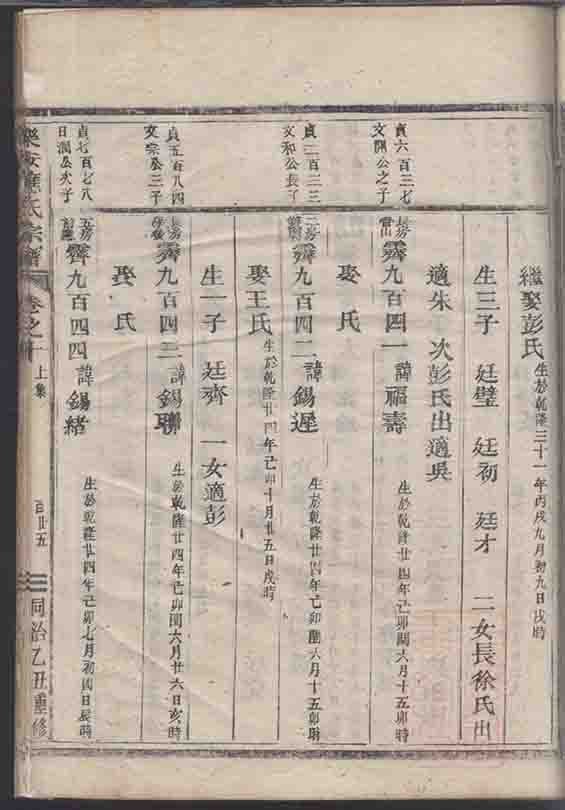 繼娶彭氏 生於乾隆三十一年丙戌九月初九日戌時
生三子 廷璧 廷初 廷才 二女長徐氏出
適朱 次彭氏出適吳
貞六百三七
文開公之子
長房
霽九百四一 諱福壽 生於乾隆廿四年己卯閏六月十五卯時
娶 氏
貞二百三三
文和公長子
霽九百四二 諱錫遲 生於乾隆廿四年己卯閏六月十五卯時
娶王氏 生於乾隆廿四年己卯十月廿五日戌時
生一子 廷齊 一女適彭
貞五百八四
文宗公三子
長房
霽九百四三 諱錫聯 生於乾隆廿四年己卯閏六月廿六日亥時
娶 氏
貞七百七八
日潤公次子
五房
霽九百四四 諱錫緒 生於乾隆廿四年己卯七月初四日辰時
樂安 氏宗譜 卷之十 上集 百廿五 同治乙丑重修